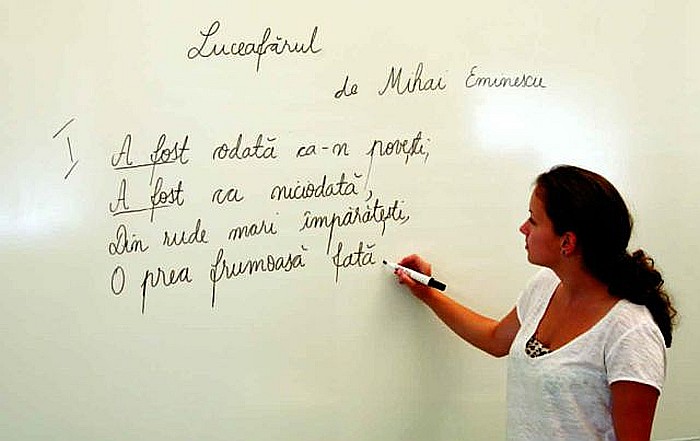 Luceafărul
de Mihai Eminescu
I A fost odată ca-n povești,
A fost ca niciodată,
Din rude mari împărătești,
O prea frumoasă fată.